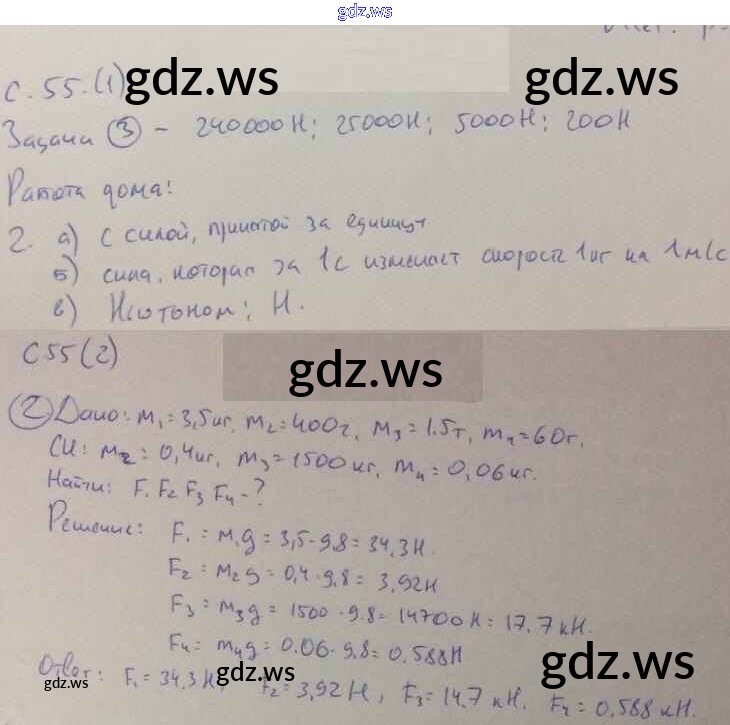 gdz.ws
С. 55. (1) gdz.ws gdz.ws
Задача ③ – 240000Н; 25000Н; 5000Н; 200Н
Работа дома:
2. а) с силой, принятой за единицу
б) сила, которая за 1с изменяет скорость 1кг на 1м/с
в) Ньютоном; Н.
С 55 (2) gdz.ws
② Дано: m₁ = 3,5кг, m₂ = 400г, m₃ = 1.5т, m₄ = 60г.
СИ: m₂ = 0,4кг, m₃ = 1500кг, m₄ = 0,06кг.
Найти: F₁ F₂ F₃ F₄ - ?
Решение: F₁ = m₁g = 3,5·9,8 = 34,3Н.
F₂ = m₂g = 0,4·9,8 = 3,92Н
F₃ = m₃g = 1500·9.8 = 14700Н = 17,7кН.
F₄ = m₄g = 0.06·9.8 = 0.588Н
Ответ: F₁ = 34,3Н, F₂ = 3,92Н, F₃ = 14,7кН. F₄ = 0,588кН.
gdz.ws gdz.ws gdz.ws